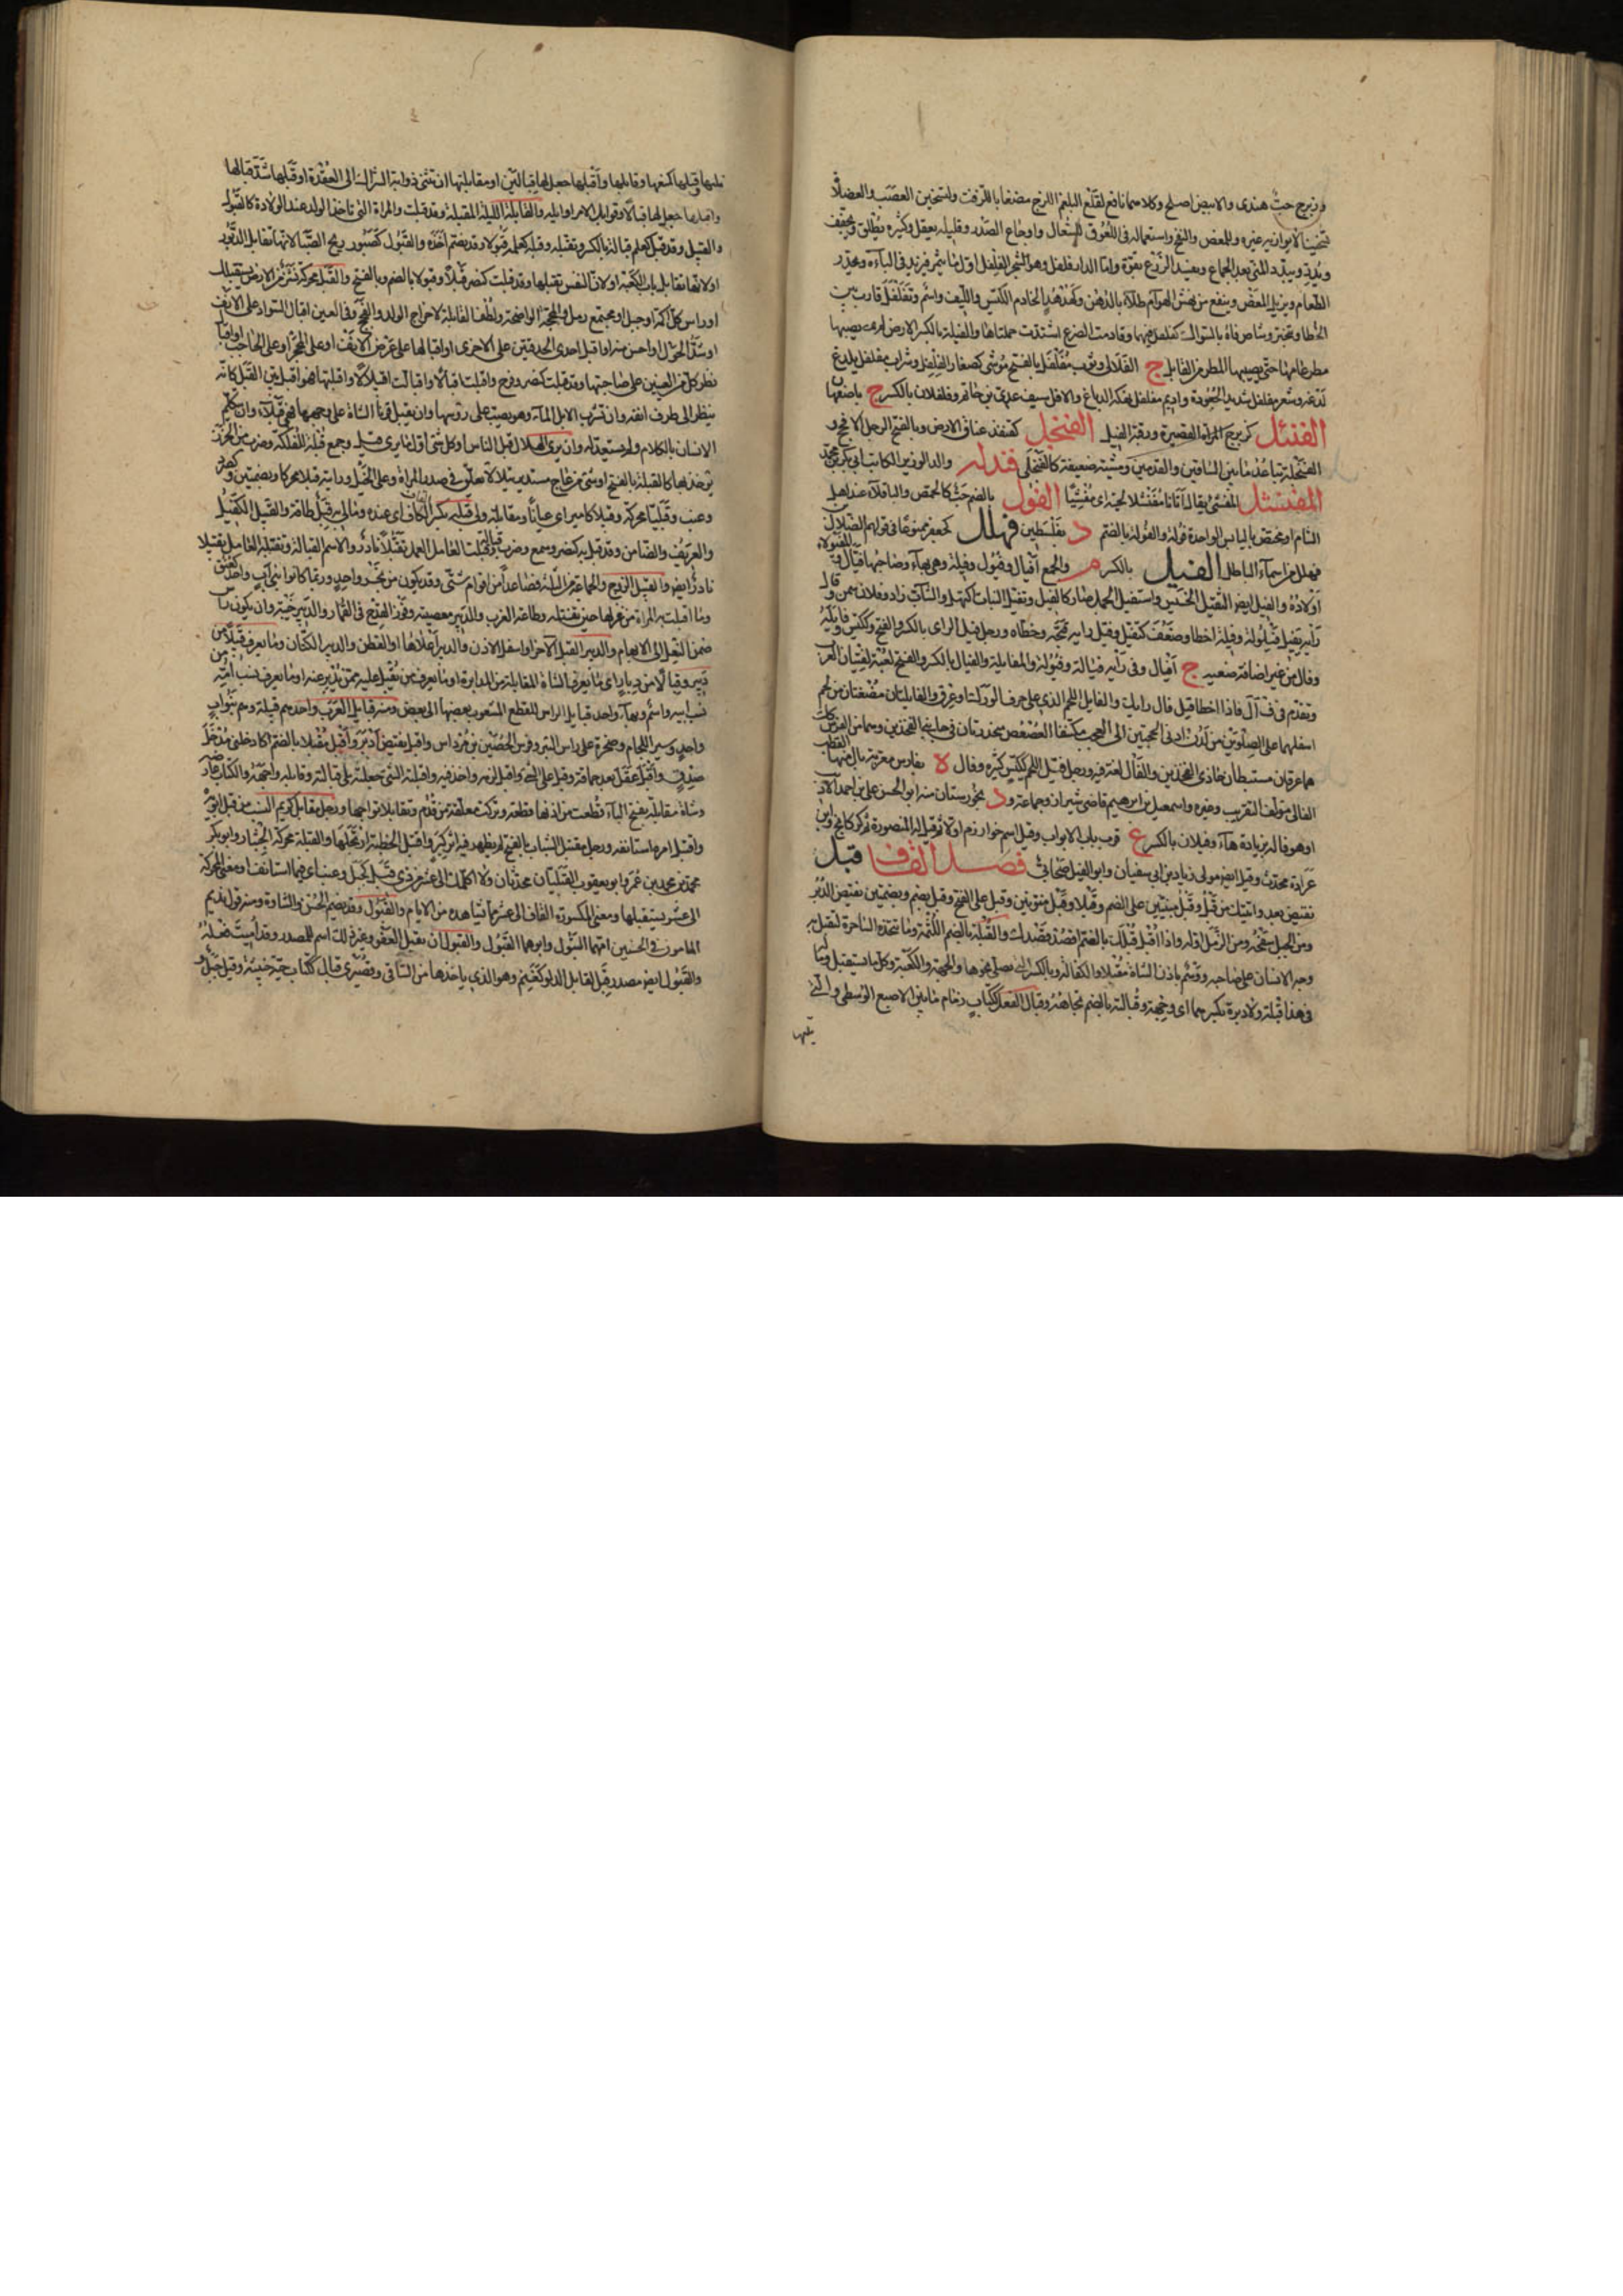 وزبرج حب هندى والابيض اصلح وكلاهما نافع لقلع البلغم اللزج مضغا بالزفت ولتسخين العصب والعضلات
تسخينا لا يوازيه غيره وللمغص والنفخ واستعماله فى اللعوق للسعال واوجاع الصدر وقليله يعقل وكثيره يطلق ويجفف
ويدر ويبدد المنى بعد الجماع ويفسد الزرع بقوة واما الدار فلفل وهو شجر الفلفل اول ما يثمر فيزيد فى الباءة ويحدر
الطعام ويزيل المغص وينفع من نهش الهوام طلاء بالدهن وكهدهد الخادم الكيس والليف واسم وتفلفل قارب بين
الخطا وتبختر وشاص فاه بالسواك كفلفل فيهما وقادمتا الضرع اسودت حلمتاهما والفيلة بالكسر الارض لم يصبها
مطر عامها حتى يصيبها المطر من القابل ج الفلالى وثوب مفلفل بالفتح موشى كصغار الفلفل وشراب مفلفل يلذع
لذعه وشعر مفلفل شديد الجعودة واديم مفلفل نهكه الدباغ والافل سيف عدى بن حاتم وفلفلان بالكسر ة باصفهان
الفنئل كزبرج المراة القصيرة ورقبة الفيل الفنجل كقنفذ عناق الارض وبالفتح الرجل الافحج و
الفنجلة تباعد ما بين الساقين والقدمين ومشية ضعيفة كالفنجلى فندله والد الوزير الكاتب ابى بكر بن محمد
المفنشل المفنشى يقال اتانا مفنشلا لحيته اى مفنشيا الفول بالضم حب كالحمص والباقلاء عند اهل
الشام او مختص باليابس الواحدة فولة والفولة بالضم د بفلسطين فهلل كجعفر ممنوعا فى قولهم الضلال بن
فهلل من اسماء الباطل الفيل بالكسر م والجمع افيال وفيول وفيلة وهى بهاء وصاحبها فيال و
اولاده والفيل ايضا الثقيل الخسيس واستفيل الجمل صار كالفيل وتفيل النبات اكتهل والشاب زاد وفلان سمن وفال
رايه يفيل فيلولة وفيلة اخطا وضعف كتفيل وفيل رايه قبحه وخطاه ورجل فيل الراى بالكسر والفتح وككيس وفائله
وفال من غير اضافة ضعيفه ج افيال وفى رايه فيالة وفيولة والمفايلة والفيال بالكسر والفتح لعبة لفتيان العرب
وتقدم فى ف أ ل فاذا اخطا قيل فال رايك والفايل اللحم الذى على خرب الورك او عرق والفايلتان مضغتان من لحم
اسفلهما على الصلوين من لدن ادنى الحجبتين الى العجب مكتنفا العصعص منحدرتان فى جانبى الفخذين وهما من الفرس كذلك
هما عرقان مستبطان حاذى الفخذين والفال لغة فيه ورجل فيل اللحم ككيس كثيره وفال لا بفارس معربة بال منها القطب
الفالى مؤلف التقريب وغيره واسمعيل بن ابرهيم قاضى شيراز وجماعة و د بخوزستان منه ابو الحسن على بن احمد الاديب
او هو فاله بزيادة هاء وفيلان بالكسر ع قرب باب الابواب وفيل اسم خوارزم اولا ثم قيل له المنصورة ثم كركانج وابن
عرادة محدث وفيل ايضا مولى زياد بن ابى سفيان وابو الفيل صحابى فصل القاف قبل
نقيض بعد واتيتك من قبل وقبل مبنيتين على الضم وقبلا وقبل منونتين وقبل على الفتح وقبل بضم وبضمتين نقيض الدبر
ومن الجبل سفحه ومن الزمن اوله واذا اقبل قبلك بالضم اقصد قصدك والقبلة بالضم اللثمة وما تتخذه الساحرة لتقبل به
وجه الانسان على صاحبه ووسم باذن الشاة مقبلا والكفالة وبالكسر التى يصلى نحوها والجهة والكعبة وكل ما يستقبل وما له
فى هذا قبلة ولا دبرة بكسرهما اى وجهة وقبالته بالضم تجاهه وقبال النعل ككتاب زمام ما بين الاصبع الوسطى والتى
تليها
تليها وقبلها كمنعها وقابلها واقبلها جعل لها قبالين او مقابلتها ان تثنى ذوابة الشراك الى العقدة او قبلها شد قبالها
واقبلها جعل لها قبالا وقوابل الامر اوايله والقابلة الليلة المقبلة وقد قبلت والمراة التى تاخذ الولد عند الولادة كالقبول
والقبيل وقد قبلت كعلم قبالة بالكسر وتقبله وقبله كعلمه قبولا وقد يضم اخذه والقبول كصبور ريح الصبا لانها تقابل الدبور
او لانها تقابل باب الكعبة او لان النفس تقبلها وقد قبلت كنصر قبلا وقبولا بالضم وبالفتح والقبل محركة نشز من الارض يستقبلك
او راس كل اكمة او جبل او مجتمع رمل والمحجة الواضحة ولطف القابلة لاخراج الولد والفحج وفى العين اقبال السواد على الانف
او مثل الحول او احسن منه او اقبال احدى الحدقتين على الاخرى او اقبالها على عرض الانف او على المحجر او على الحاجب او اقبال
نظر كل من العينين على صاحبتها وقد قبلت كنصر وفرح واقبلت اقبالا واقبالت اقبيلالا واقبلتها فهو اقبل بين القبل كانه
ينظر الى طرف انفه وان تشرب الابل الماء وهو يصب على رؤسها وان يقبل قرنا الشاة على وجهها فهى قبلاء وان يتكلم
الانسان بالكلام ولم يستعد له وان يرى الهلال قبل الناس او كل شى اول ما يرى قبل وجمع قبلة للفلكة وضرب من الخرز
يؤخذ بها كالقبلة بالفتح او شى من عاج مستدير يتلالا يعلق فى صدر المراة وعلى الخيل ورايته قبلا محركة وبضمتين وكصرد
وعنب وقبليا محركة وقبيلا كامير اى عيانا ومقابلة ولى قبله بكسر القاف اى عنده ومالى به قبل طاقة والقبيل الكفيل
والعريف والضامن وقد قبل به كنصر وسمع وضرب قبالة وقبلت العامل العمل تقبلا نادر والاسم القبالة وتقبله العامل تقبيلا
نادر ايضا والقبيل الزوج والجماعة من الثلثة فصاعدا من اقوام شتى وقد يكون من نحو واحد وربما كانوا بنى اب واحد كعنق
وما اقبلت به المراة من غزلها حين تفتله وطاعة الرب والدبير معصيته وفوز القدح فى القمار والدبير خيبته وان يكون راس
ضمن النعل الى الابهام والدبير القبل الاخر او اسفل الاذن والدبير اعلاها او القطن والدبير الكتان وما يعرف قبيلا من
دبير وقبالا من دبار اى ما يعرف الشاة المقابلة من المدابرة او ما يعرف من يقبل عليه ممن يدبر عنه او ما يعرف نسب امه من
نسب ابيه واسم وبهاء واحد قبايل الراس للقطع المشعوب بعضها الى بعض ومنه قبايل العرب واحدهم قبيلة وهم بنو اب
واحد وسير اللجام وصخرة على راس البئر وفرس الحصين بن مرداس واقبل نقيض ادبر واقبل مقبلا بالضم كادخلنى مدخل
صدق واقبل عقل بعد حماقة وقبل على الشى واقبل لزمه واخذ فيه واقبلته الشى جعلته يلى قبالته وقابله واجهه والكتاب عارضه
وشاة مقابلة بفتح الباء قطعت من اذنها قطعة وتركت معلقة من قدم وتقابلا تواجها ورجل مقابل كريم النسب من قبل ابويه
واقتبل امره استانفه ورجل مقتبل الشباب بالفتح لم يظهر فيه اثر كبر واقتبل الخطبة ارتجلها والقبلة محركة الجشار وابو بكر
محمد بن محمد بن عمرو وابو يعقوب القبليان محدثان ولا اكلمك الى عشر من ذى قبل كجبل وعنب اى فيما استانف او معنى المحركة
الى عشر تستقبلها ومعنى المكسورة القاف الى عشر مما تشاهده من الايام والقبول وقد يضم الحسن والشارة ومنه قول نديم
المامون فى الحسنين امهما البتول وابوهما القبول والقبول ان تقبل العفو وغير ذلك اسم للمصدر وقد اميت فعله
والقبول ايضا مصدر قبل القابل الدلو كعلم وهو الذى ياخذها من الساقى وقصيرى قبال ككتاب حية خبيثة وقبل جبل و